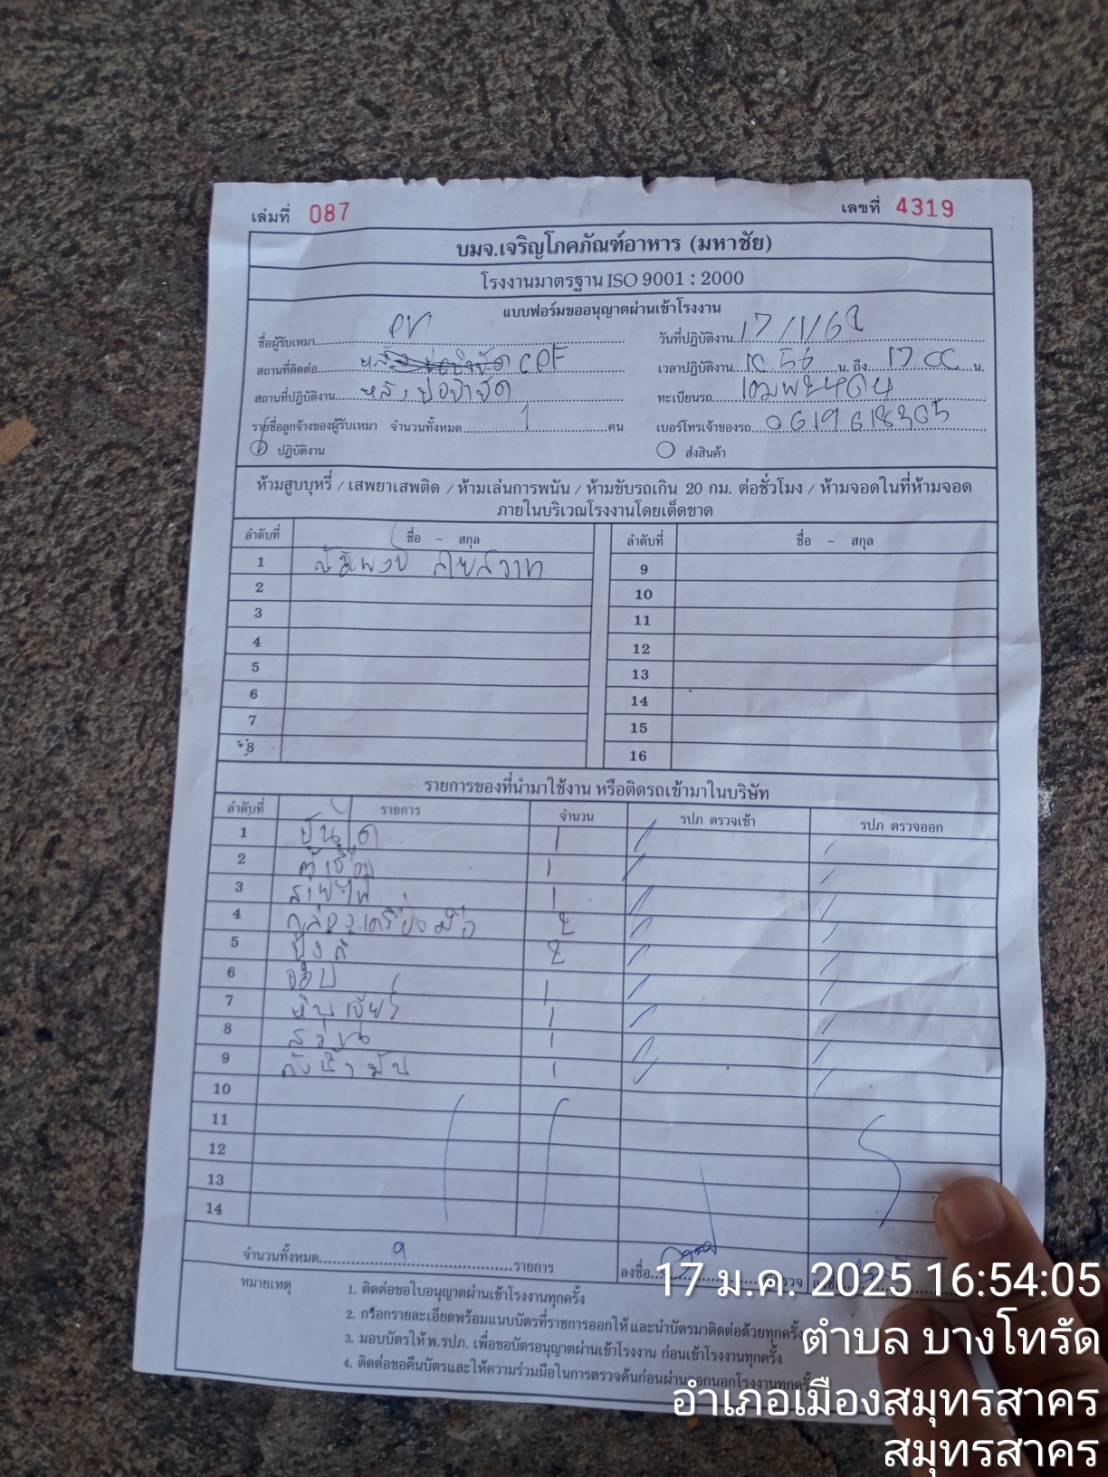 เล่มที่ 087
เลขที่ 4319
บมจ.เจริญโภคภัณฑ์อาหาร (มหาชัย)
โรงงานมาตรฐาน ISO 9001 : 2000
แบบฟอร์มขออนุญาตผ่านเข้าโรงงาน
ชื่อผู้รับเหมา
วันที่ปฏิบัติงาน 17/1/68
สถานที่ติดต่อ CPF
เวลาปฏิบัติงาน 10.56 น. ถึง 17 00 น.
สถานที่ปฏิบัติงาน หลังบ่อบำบัด
ทะเบียนรถ
รายชื่อลูกจ้างของผู้รับเหมา จำนวนทั้งหมด 1 คน
เบอร์โทรเจ้าของรถ 0619618305
ปฏิบัติงาน
ส่งสินค้า
ห้ามสูบบุหรี่ / เสพยาเสพติด / ห้ามเล่นการพนัน / ห้ามขับรถเกิน 20 กม. ต่อชั่วโมง / ห้ามจอดในที่ห้ามจอด
ภายในบริเวณโรงงานโดยเด็ดขาด
ลำดับที่ ชื่อ - สกุล ลำดับที่ ชื่อ - สกุล
1 9
2 10
3 11
4 12
5 13
6 14
7 15
8 16
รายการของที่นำมาใช้งาน หรือติดรถเข้ามาในบริษัท
ลำดับที่ รายการ จำนวน รปภ ตรวจเข้า รปภ ตรวจออก
1 บันได 1 /
2 ตู้เชื่อม 1 /
3 สายไฟ 1 /
4 กล่องเครื่องมือ 2 /
5 ปุ้งกี๋ 2 /
6 1 /
7 หินเจียร์ 1 /
8 สว่าน 1 /
9 ถังน้ำมัน 1 /
10
11
12
13
14
จำนวนทั้งหมด 9 รายการ
ลงชื่อ
หมายเหตุ 1. ติดต่อขอใบอนุญาตผ่านเข้าโรงงานทุกครั้ง
2. กรอกรายละเอียดพร้อมแนบบัตรที่ราชการออกให้ และนำบัตรมาติดต่อด้วยทุกครั้ง
3. มอบบัตรให้ พ.รปภ. เพื่อขอบัตรอนุญาตผ่านเข้าโรงงาน ก่อนเข้าโรงงานทุกครั้ง
4. ติดต่อขอคืนบัตรและให้ความร่วมมือในการตรวจค้นก่อนผ่านออกนอกโรงงานทุกครั้ง
17 ม.ค. 2025 16:54:05
ตำบล บางโทรัด
อำเภอเมืองสมุทรสาคร
สมุทรสาคร